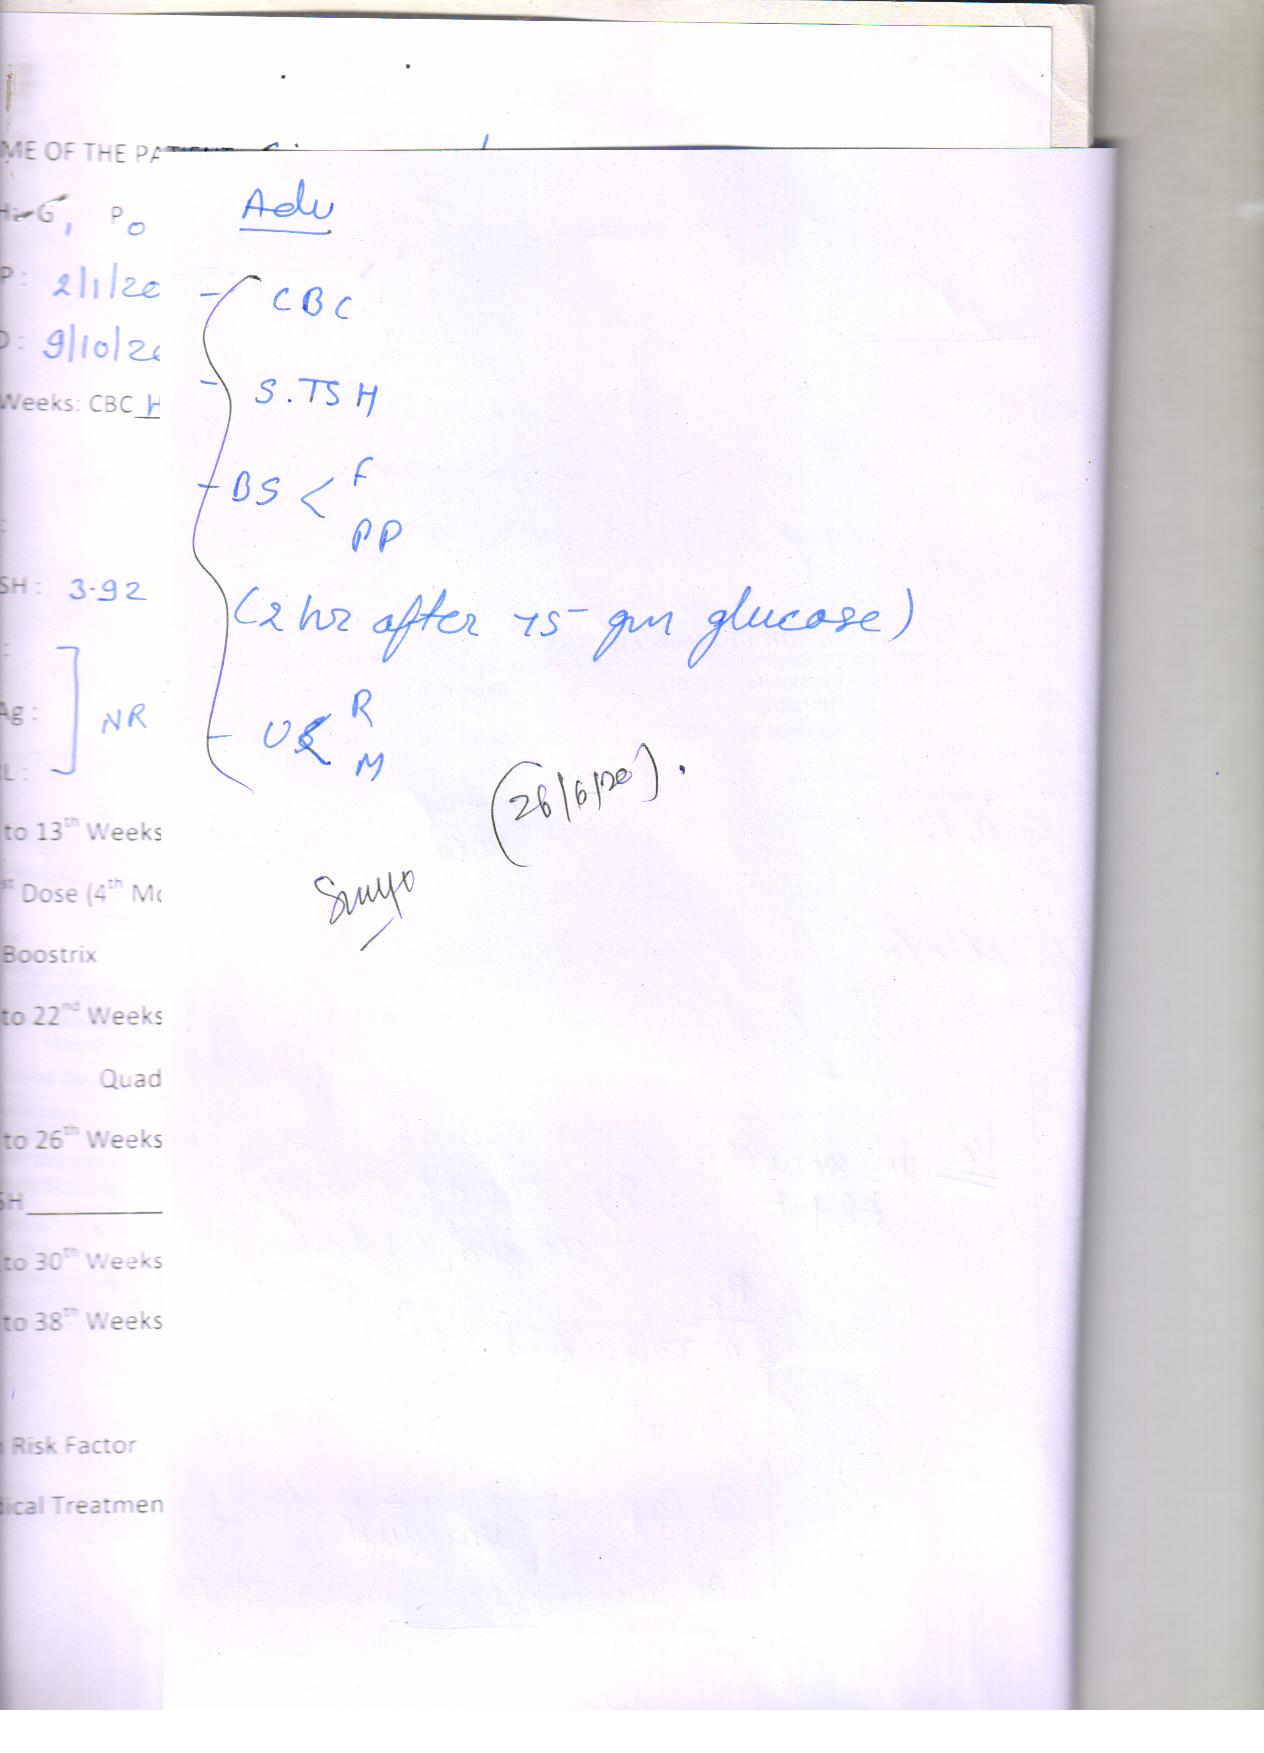 ME OF THE PA
G1 P0
P: 2/1/20
D: 9/10/20
Weeks: CBC H
SH: 3.92
Ag: NR
L:
to 13th Weeks
st Dose (4th Mo
Boostrix
to 22nd Weeks
Quad
to 26th Weeks
SH
to 30th Weeks
to 38th Weeks
Risk Factor
dical Treatmen
Adv
- CBC
- S.TSH
- BS < F
PP
(2 hr after 75 gm glucose)
- U < R
M
(26/6/20).